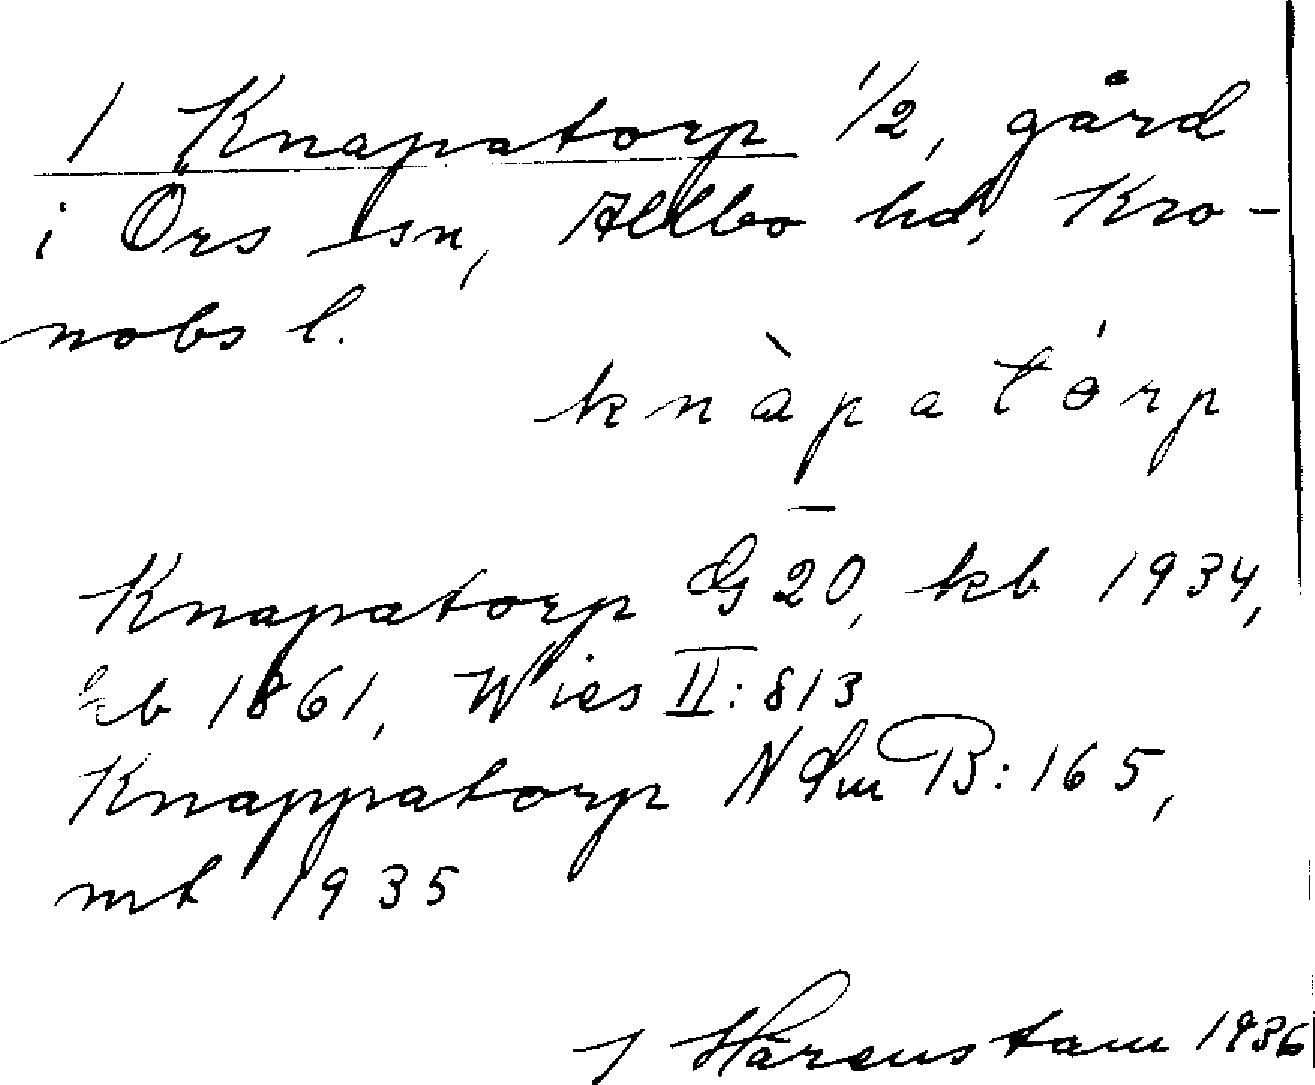 1 Knapatorp 1/2, gård
i Örs sn, Allbo hd, Kro-
nobs l.
knàpatórp
Knapatorp G 20, kb 1934,
kb 1861, Wies II: 813
Knappatorp N Sm B: 165,
mt 1935
J Hårenstam 1936